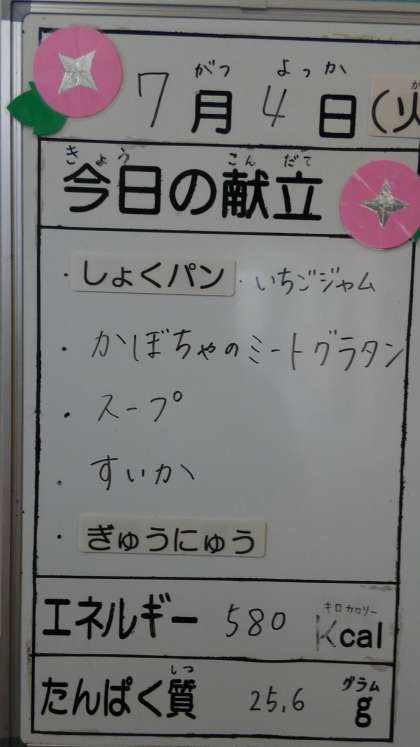 がつ よっか
7月4日(火
きょう こんだて
今日の献立
・しょくパン ・いちごジャム
・かぼちゃのミートグラタン
・スープ
・すいか
・ぎゅうにゅう
キロカロリー
エネルギー 580 Kcal
しつ グラム
たんぱく質 25.6 g